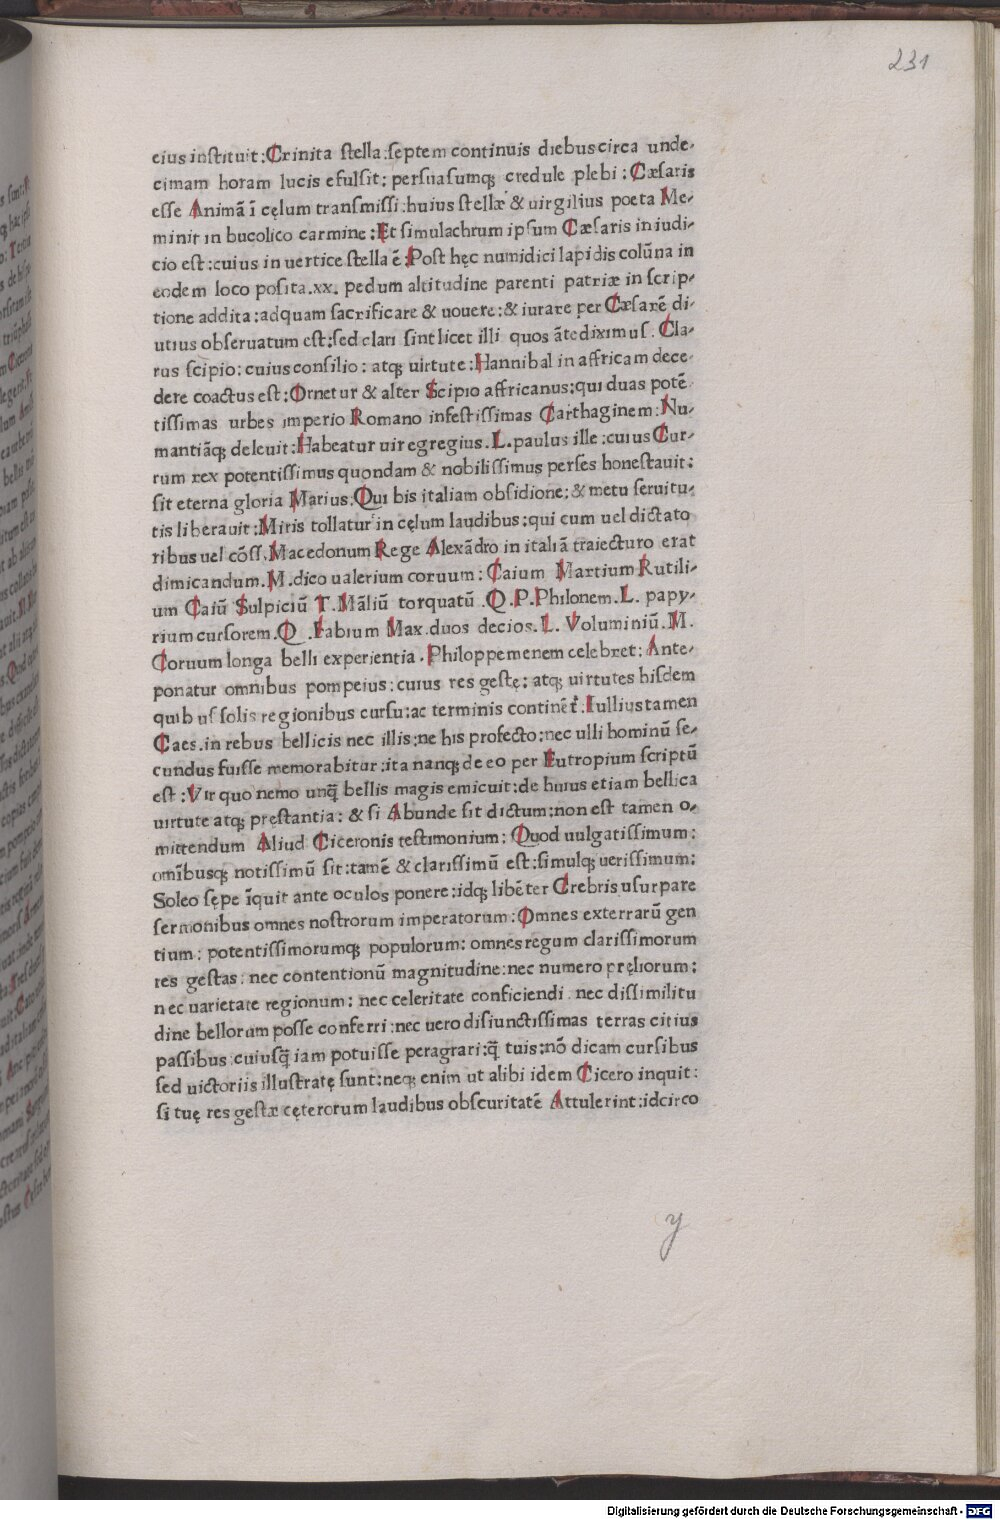 231
eius instituit : Crinita stella : septem continuis diebus circa unde-
cimam horam lucis efulsit ; persuasumq; credule plebi : Cæsaris
esse Animā ī cęlum transmissi : huius stellæ & uirgilius poeta Me-
minit in bucolico carmine : Et simulachrum ipsum Cæsaris in iudi-
cio est : cuius in uertice stella ē : Post hęc numidici lapidis colūna in
eodem loco posita .xx. pedum altitudine parenti patriæ in scrip-
tione addita : ad quam sacrificare & uouere : & iurare per Cæsarē di-
utius obseruatum est : sed clari sint licet illi quos āte diximus . Cla-
rus scipio : cuius consilio : atq; uirtute : Hannibal in affricam dece-
dere coactus est : Ornetur & alter Scipio affricanus : qui duas potē-
tissimas urbes imperio Romano infestissimas Carthaginem : Nu-
mantiāq; deleuit : Habeatur uir egregius . L. paulus ille : cuius Cur-
rum rex potentissimus quondam & nobilissimus perses honestauit :
sit eterna gloria Marius : Qui bis italiam obsidione : & metu seruitu-
tis liberauit : Miris tollatur in cęlum laudibus : qui cum uel dictato
ribus uel cōss. Macedonum Rege Alexādro in italiā traiecturo erat
dimicandum . M. dico ualerium coruum : Caium Martium Rutili-
um Caiū Sulpiciū T. Māliū torquatū . Q. P. Philonem . L. papy-
rium cursorem . Q . Fabium Max. duos decios . L. Voluminiū . M.
Coruum longa belli experientia . Philoppemenem celebret : Ante-
ponatur omnibus pompeius : cuius res gestę : atq; uirtutes hisdem
quibus solis regionibus cursu : ac terminis continēt̄ : Iullius tamen
Caes. in rebus bellicis nec illis : ne his profecto : nec ulli hominū se-
cundus fuisse memorabitur : ita nanq; de eo per Eutropium scriptū
est : Vir quo nemo unq̄ bellis magis emicuit : de huius etiam bellica
uirtute atq; pręstantia : & si Abunde sit dictum : non est tamen o-
mittendum Aliud Ciceronis testimonium : Quod uulgatissimum :
omībusq; notissimū sit : tamē & clarissimū est : simulq; uerissimum :
Soleo sępe īquit ante oculos ponere : idq; libēter Crebris usurpare
sermonibus omnes nostrorum imperatorum : Omnes exterrarū gen
tium : potentissimorumq; populorum : omnes regum clarissimorum
res gestas : nec contentionū magnitudine : nec numero pręliorum :
nec uarietate regionum : nec celeritate conficiendi . nec dissimilitu
dine bellorum posse conferri : nec uero disiunctissimas terras citius
passibus cuiusq̄ iam potuisse peragrari : q̄ tuis : nō dicam cursibus
sed uictoriis illustratę sunt : neq; enim ut alibi idem Cicero inquit :
si tuę res gestæ cęterorum laudibus obscuritatē Attulerint : idcirco
y
Digitalisierung gefördert durch die Deutsche Forschungsgemeinschaft - DFG